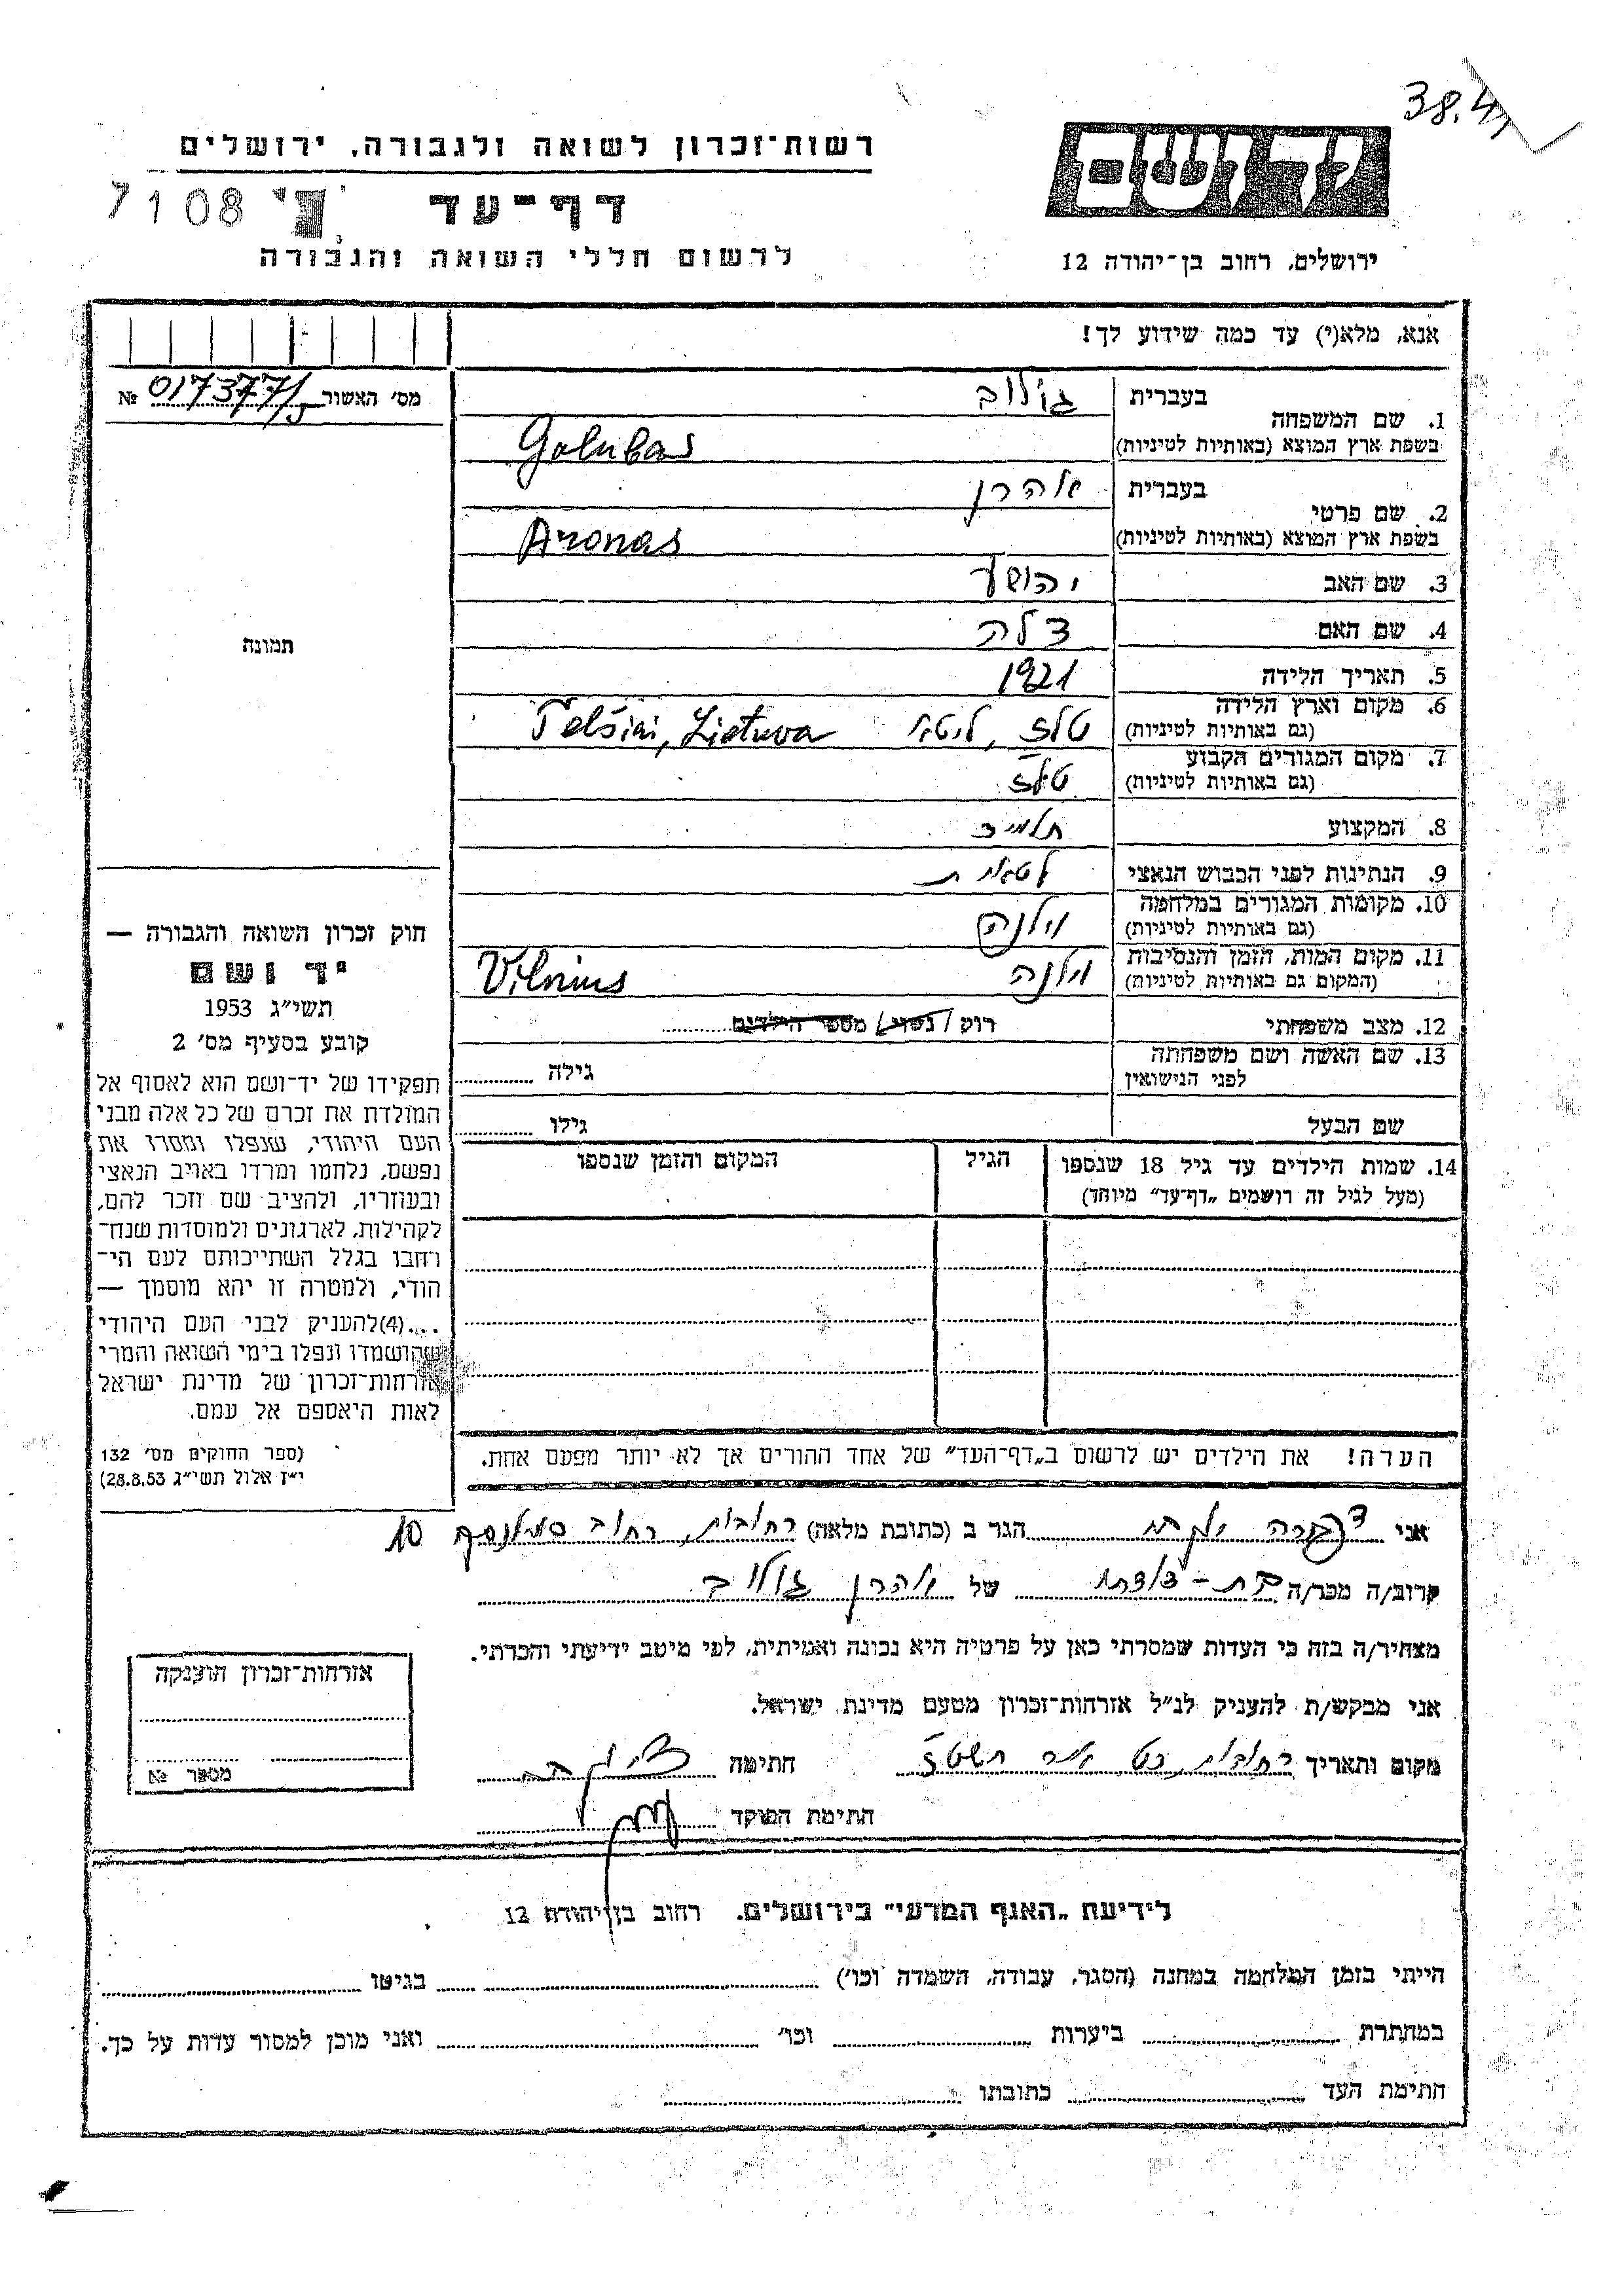 38.4
רשות־זכרון לשואה ולגבורה, ירושלים
יד ושם
דף־עד
7108
לרשום חללי השואה והגבורה
ירושלים, רחוב בן־יהודה 12
אנא, מלא(י) עד כמה שידוע לך!
מס׳ האשור № 017377/
1. שם המשפחה
בעברית גולוב
בשפת ארץ המוצא (באותיות לטיניות) Golubas
2. שם פרטי
בעברית אהרן
בשפת ארץ המוצא (באותיות לטיניות) Aronas
3. שם האב יהושע
4. שם האם
5. תאריך הלידה 1921
6. מקום וארץ הלידה
(גם באותיות לטיניות) טלז, ליטא Telšiai, Lietuva
7. מקום המגורים הקבוע
(גם באותיות לטיניות) טלז
8. המקצוע תלמיד
9. הנתינות לפני הכבוש הנאצי לטאית
10. מקומות המגורים במלחמה
(גם באותיות לטיניות) וילנה
11. מקום המות, הזמן והנסיבות
(המקום גם באותיות לטיניות) וילנה Vilnius
12. מצב משפחתי רוק / נשוי / מספר הילדים
13. שם האשה ושם משפחתה
לפני הנישואין גילה
שם הבעל גילו
14. שמות הילדים עד גיל 18 שנספו הגיל המקום והזמן שנספו
(מעל לגיל זה רושמים „דף־עד״ מיוחד)
הערה! את הילדים יש לרשום ב„דף־העד״ של אחד ההורים אך לא יותר מפעם אחת.
תמונה
חוק זכרון השואה והגבורה —
יד ושם
תשי״ג 1953
קובע בסעיף מס׳ 2
תפקידו של יד־ושם הוא לאסוף אל
המולדת את זכרם של כל אלה מבני
העם היהודי, שנפלו ומסרו את
נפשם, נלחמו ומרדו באויב הנאצי
ובעוזריו, ולהציב שם וזכר להם,
לקהילות, לארגונים ולמוסדות שנח־
רחבו בגלל השתייכותם לעם הי־
הודי, ולמטרה זו יהא מוסמך —
...(4) להעניק לבני העם היהודי
שהושמדו ונפלו בימי השואה והמרי
אזרחות־זכרון של מדינת ישראל
לאות היאספם אל עמם.
(ספר החוקים מס׳ 132
י״ז אלול תשי״ג 28.8.53)
אני הגר ב (כתובת מלאה) רחובות, רחוב סמילנסקי 10
קרוב/ה מכר/ה בת-דודתו של אהרן גולוב
מצהיר/ה בזה כי העדות שמסרתי כאן על פרטיה היא נכונה ואמיתית, לפי מיטב ידיעתי והכרתי.
אני מבקש/ת להעניק לנ״ל אזרחות־זכרון מטעם מדינת ישראל.
מקום ותאריך רחובות, כט אדר תשט"ז חתימה
חתימת הפוקד
אזרחות־זכרון הוענקה
מספר №
לידיעת „האגף המדעי״ בירושלים. רחוב בן־יהודה 12
הייתי בזמן המלחמה במחנה (הסגר, עבודה, השמדה וכו׳) בגיטו
במחתרת ביערות וכו׳ ואני מוכן למסור עדות על כך.
חתימת העד כתובתו